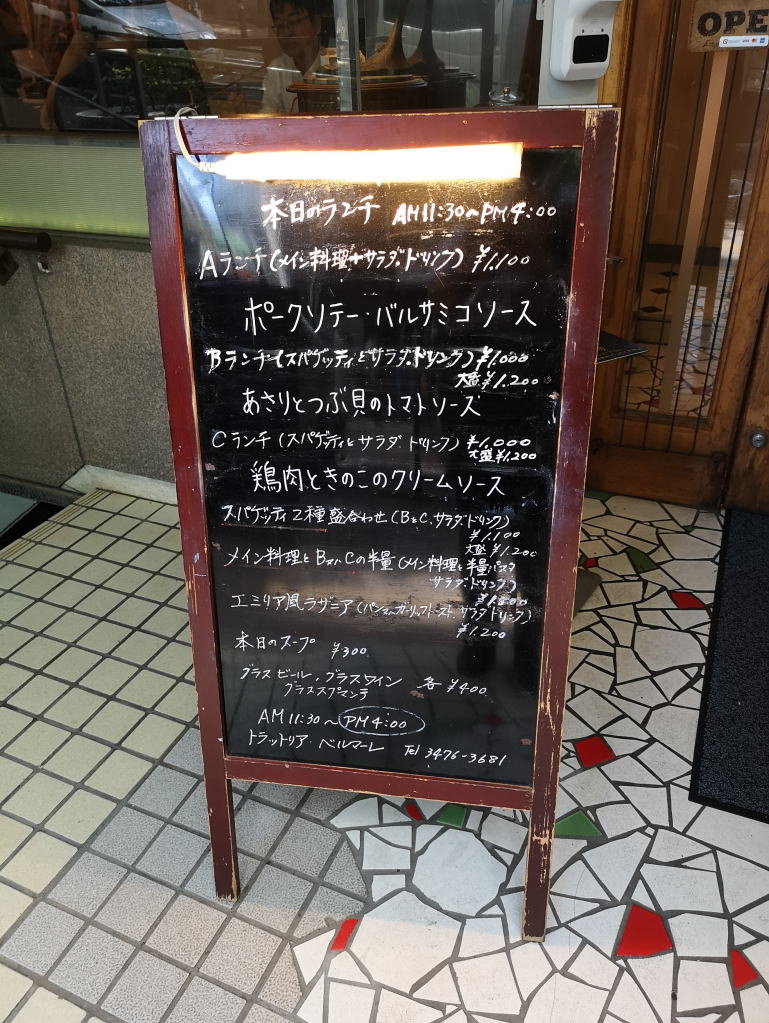 OPE
本日のランチ AM 11:30〜PM 4:00
Aランチ(メイン料理+サラダ・ドリンク) ¥1.100
ポークソテー・バルサミコソース
Bランチ(スパゲッティとサラダ・ドリンク) ¥1.000
大盛¥1.200
あさりとつぶ貝のトマトソーズ
Cランチ(スパゲッティとサラダ・ドリンク) ¥1.000
大盛¥1.200
鶏肉ときのこのクリームソース
スパゲッティ2種盛合わせ(BとC、サラダ・ドリンク)
¥1.100
大盛¥1.200
メイン料理とB又ハCの半量(メイン料理と半量パスタ
サラダ・ドリンク)
エミリア風ラザニア(パン又ハガーリックトースト、サラダ・ドリンク)
¥1.200
本日のスープ ¥300
グラスビール、グラスワイン 各¥400
グラススプマンテ
AM 11:30〜PM 4:00
トラットリア・ベルマーレ Tel 3476-3681